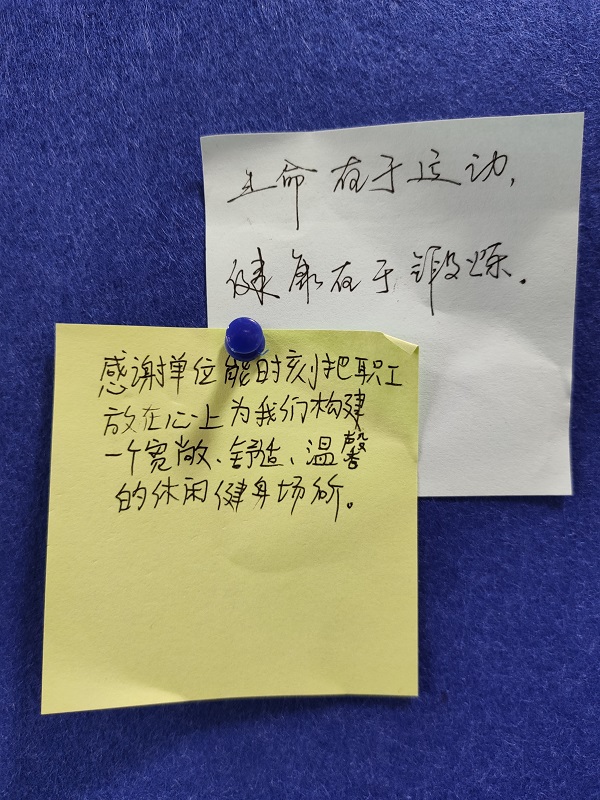 生命在于运动,
健康在于锻炼.
感谢单位能时刻把职工
放在心上为我们构建
一个宽敞、舒适、温馨
的休闲健身场所。